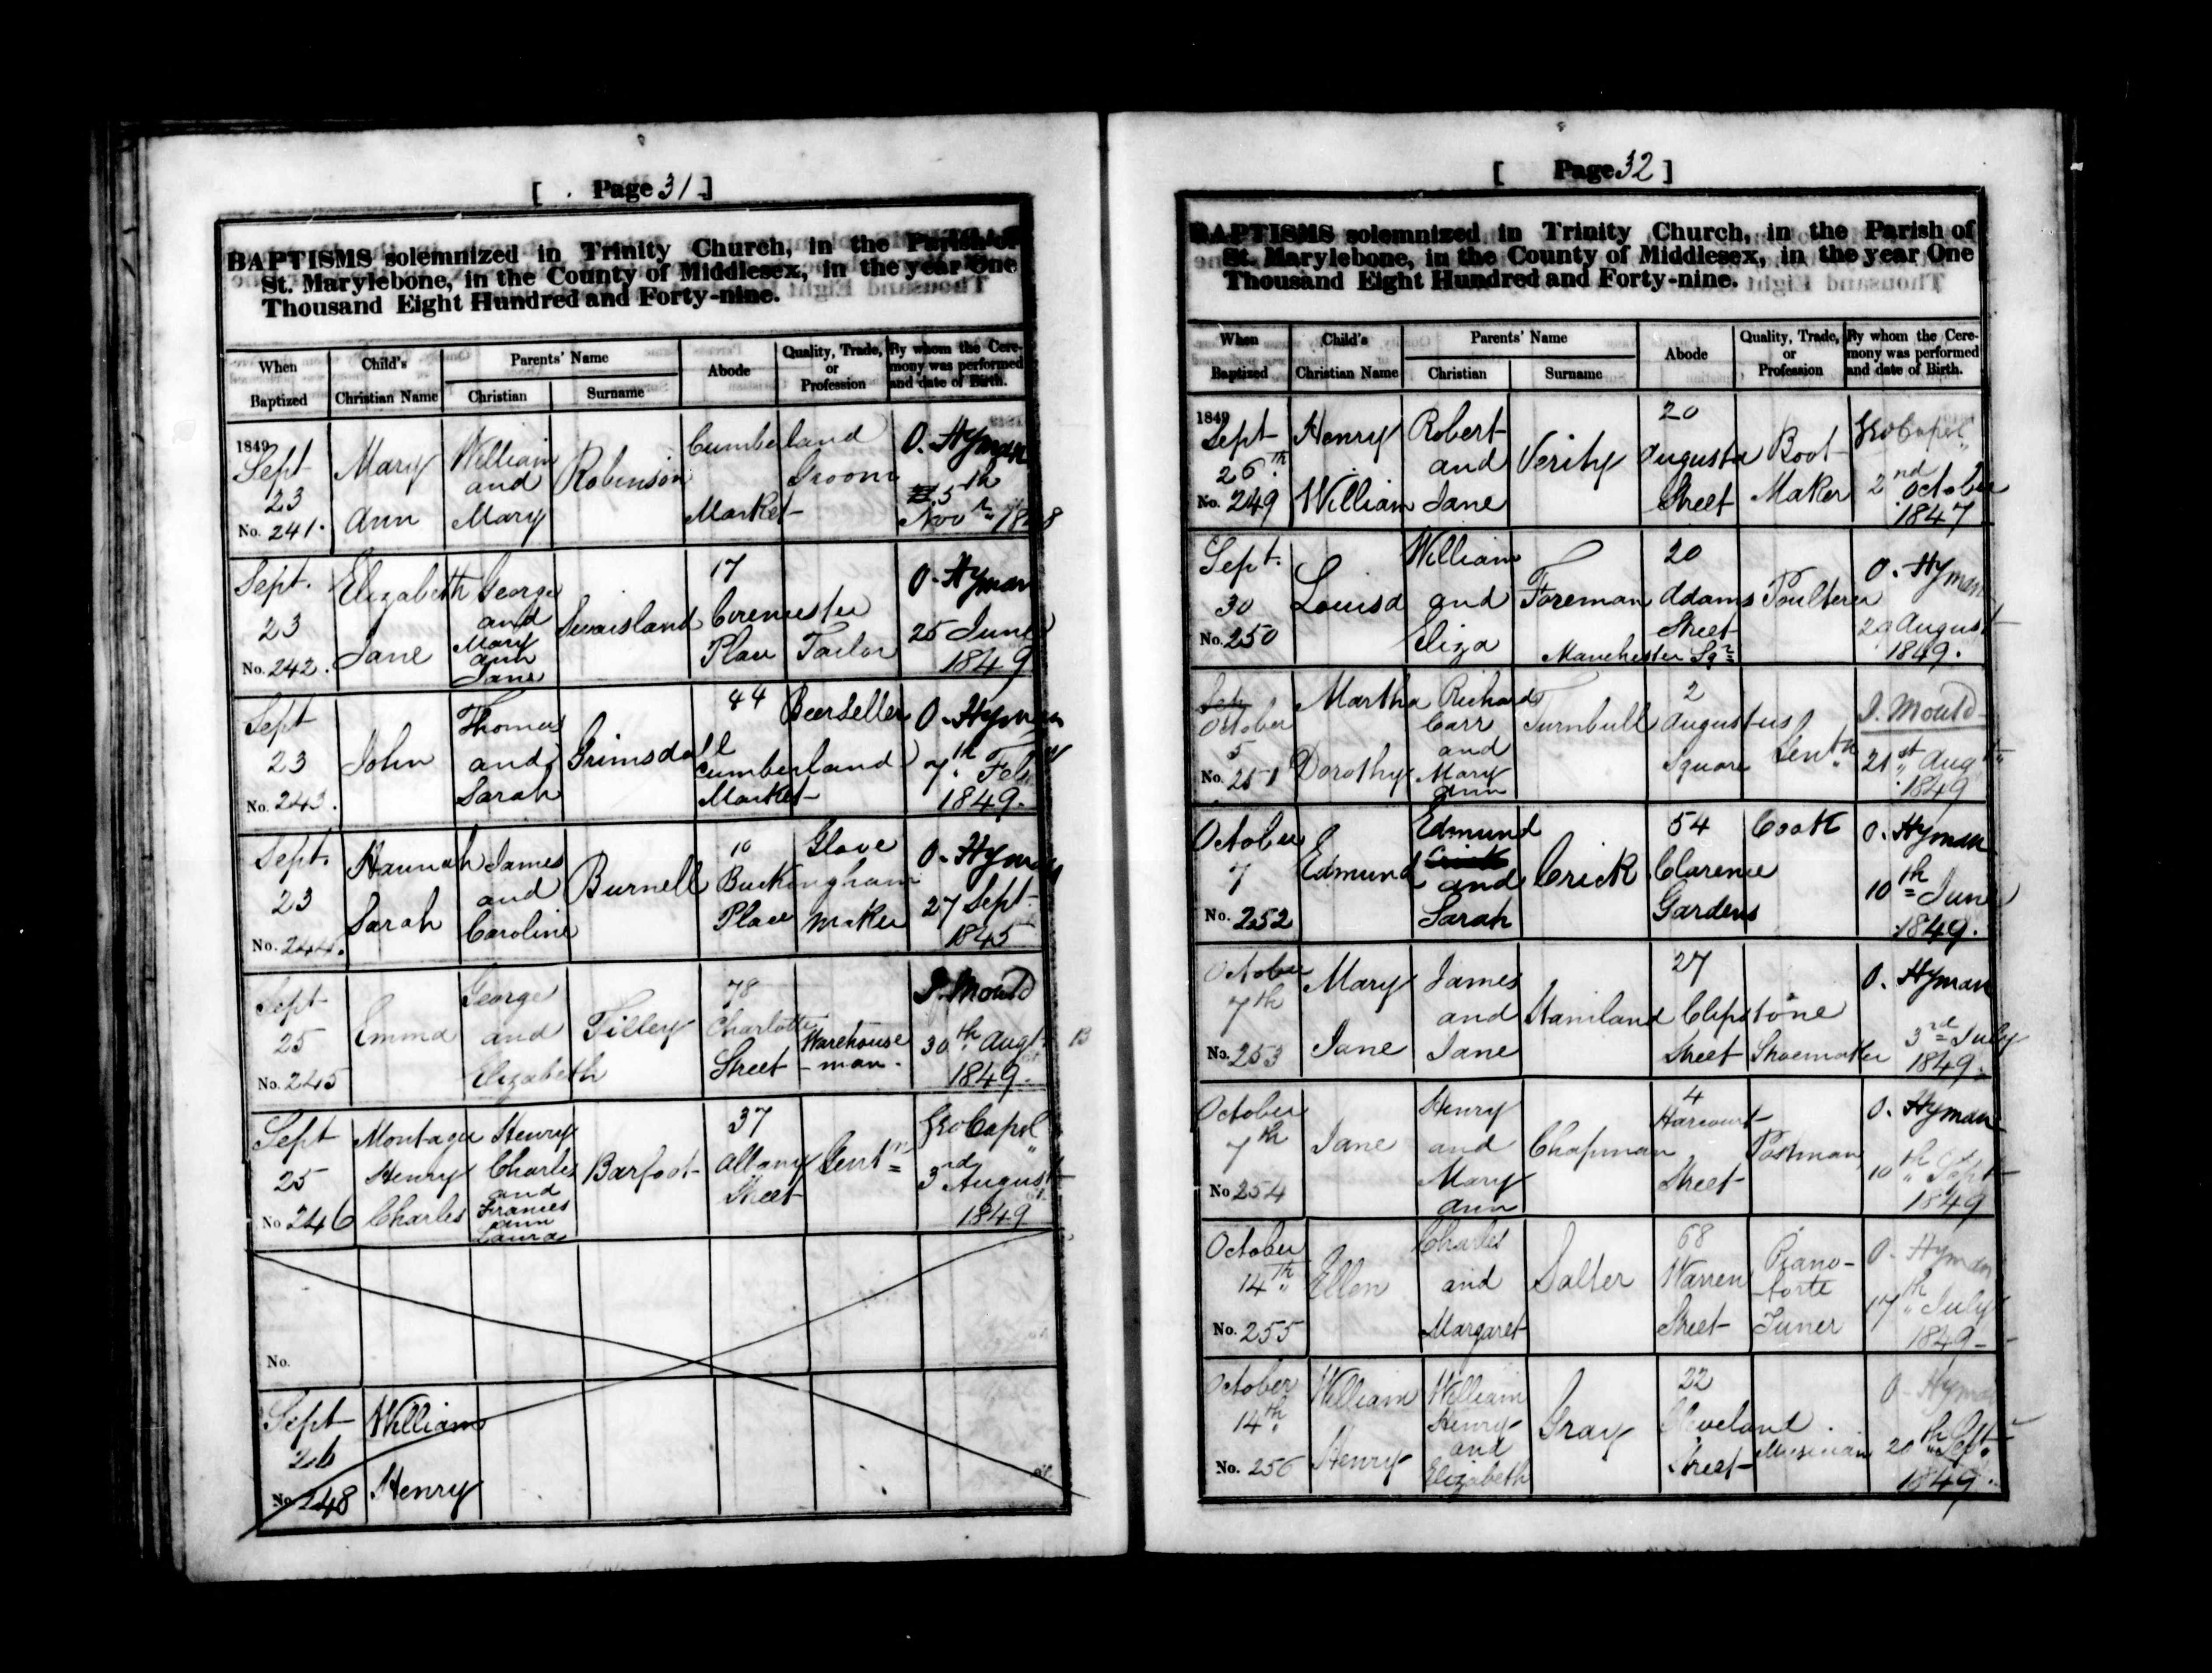 [ Page 31 ]
BAPTISMS solemnized in Trinity Church, in the Parish of
St. Marylebone, in the County of Middlesex, in the year One
Thousand Eight Hundred and Forty-nine.
When Baptized | Child's Christian Name | Parents' Name Christian | Surname | Abode | Quality, Trade, or Profession | By whom the Ceremony was performed and date of Birth.
1849 Sept 23 No. 241. | Mary Ann | William and Mary | Robinson | Cumberland Market | Groom | O. Hyman 5th Novr 1848
Sept. 23 No. 242. | Elizabeth Jane | George and Mary Ann Jane | Swaisland | 17 Cirencester Place | Tailor | O. Hyman 25 June 1849
Sept 23 No. 243. | John | Thomas and Sarah | Grimsdall | 44 Cumberland Market | Beerseller | O. Hyman 7th Feby 1849.
Sept. 23 No. 244. | Hannah Sarah | James and Caroline | Burnell | 10 Buckingham Place | Glove Maker | O. Hyman 27 Sept. 1845
Sept 25 No. 245 | Emma | George and Elizabeth | Tilley | 78 Charlotte Street | Warehouse-man. | J. Mould 30th Augt 1849.
B
Sept 25 No 246 | Montagu Henry Charles | Henry Charles and Frances Ann Laura | Barfoot | 37 Albany Street | Gentn | Geo Capel 3rd August 1849
No.
Sept 26 No 248 | William Henry
[ Page 32 ]
BAPTISMS solemnized in Trinity Church, in the Parish of
St. Marylebone, in the County of Middlesex, in the year One
Thousand Eight Hundred and Forty-nine.
When Baptized | Child's Christian Name | Parents' Name Christian | Surname | Abode | Quality, Trade, or Profession | By whom the Ceremony was performed and date of Birth.
1849 Sept 26th No. 249 | Henry William | Robert and Jane | Verity | 20 Augusta Street | Boot Maker | Geo Capel 2nd October 1847
Sept. 30 No. 250 | Louisa | William and Eliza | Foreman | 20 Adams Street Manchester Sqre | Poulterer | O. Hyman 29 August 1849.
October 5 No. 251 | Martha Dorothy | Richard Carr and Mary Ann | Turnbull | 2 Augustus Square | Gentn | J. Mould 21st Augt 1849
October 7 No. 252 | Edmund | Edmund and Sarah | Crick | 54 Clarence Gardens | Cook | O. Hyman 10th June 1849.
October 7th No. 253 | Mary Jane | James and Jane | Staniland | 27 Clipstone Street | Shoemaker | O. Hyman 3rd July 1849.
October 7th No 254 | Jane | Henry and Mary Ann | Chapman | 4 Harcourt Street | Postman | O. Hyman 10th Sept 1849
October 14th No. 255 | Ellen | Charles and Margaret | Salter | 68 Warren Street | Piano-forte Tuner | O. Hyman 17th July 1849
October 14th No. 256 | William Henry | William Henry and Elizabeth | Gray | 22 Cleveland Street | Musician | O. Hyman 20th Sept 1849.